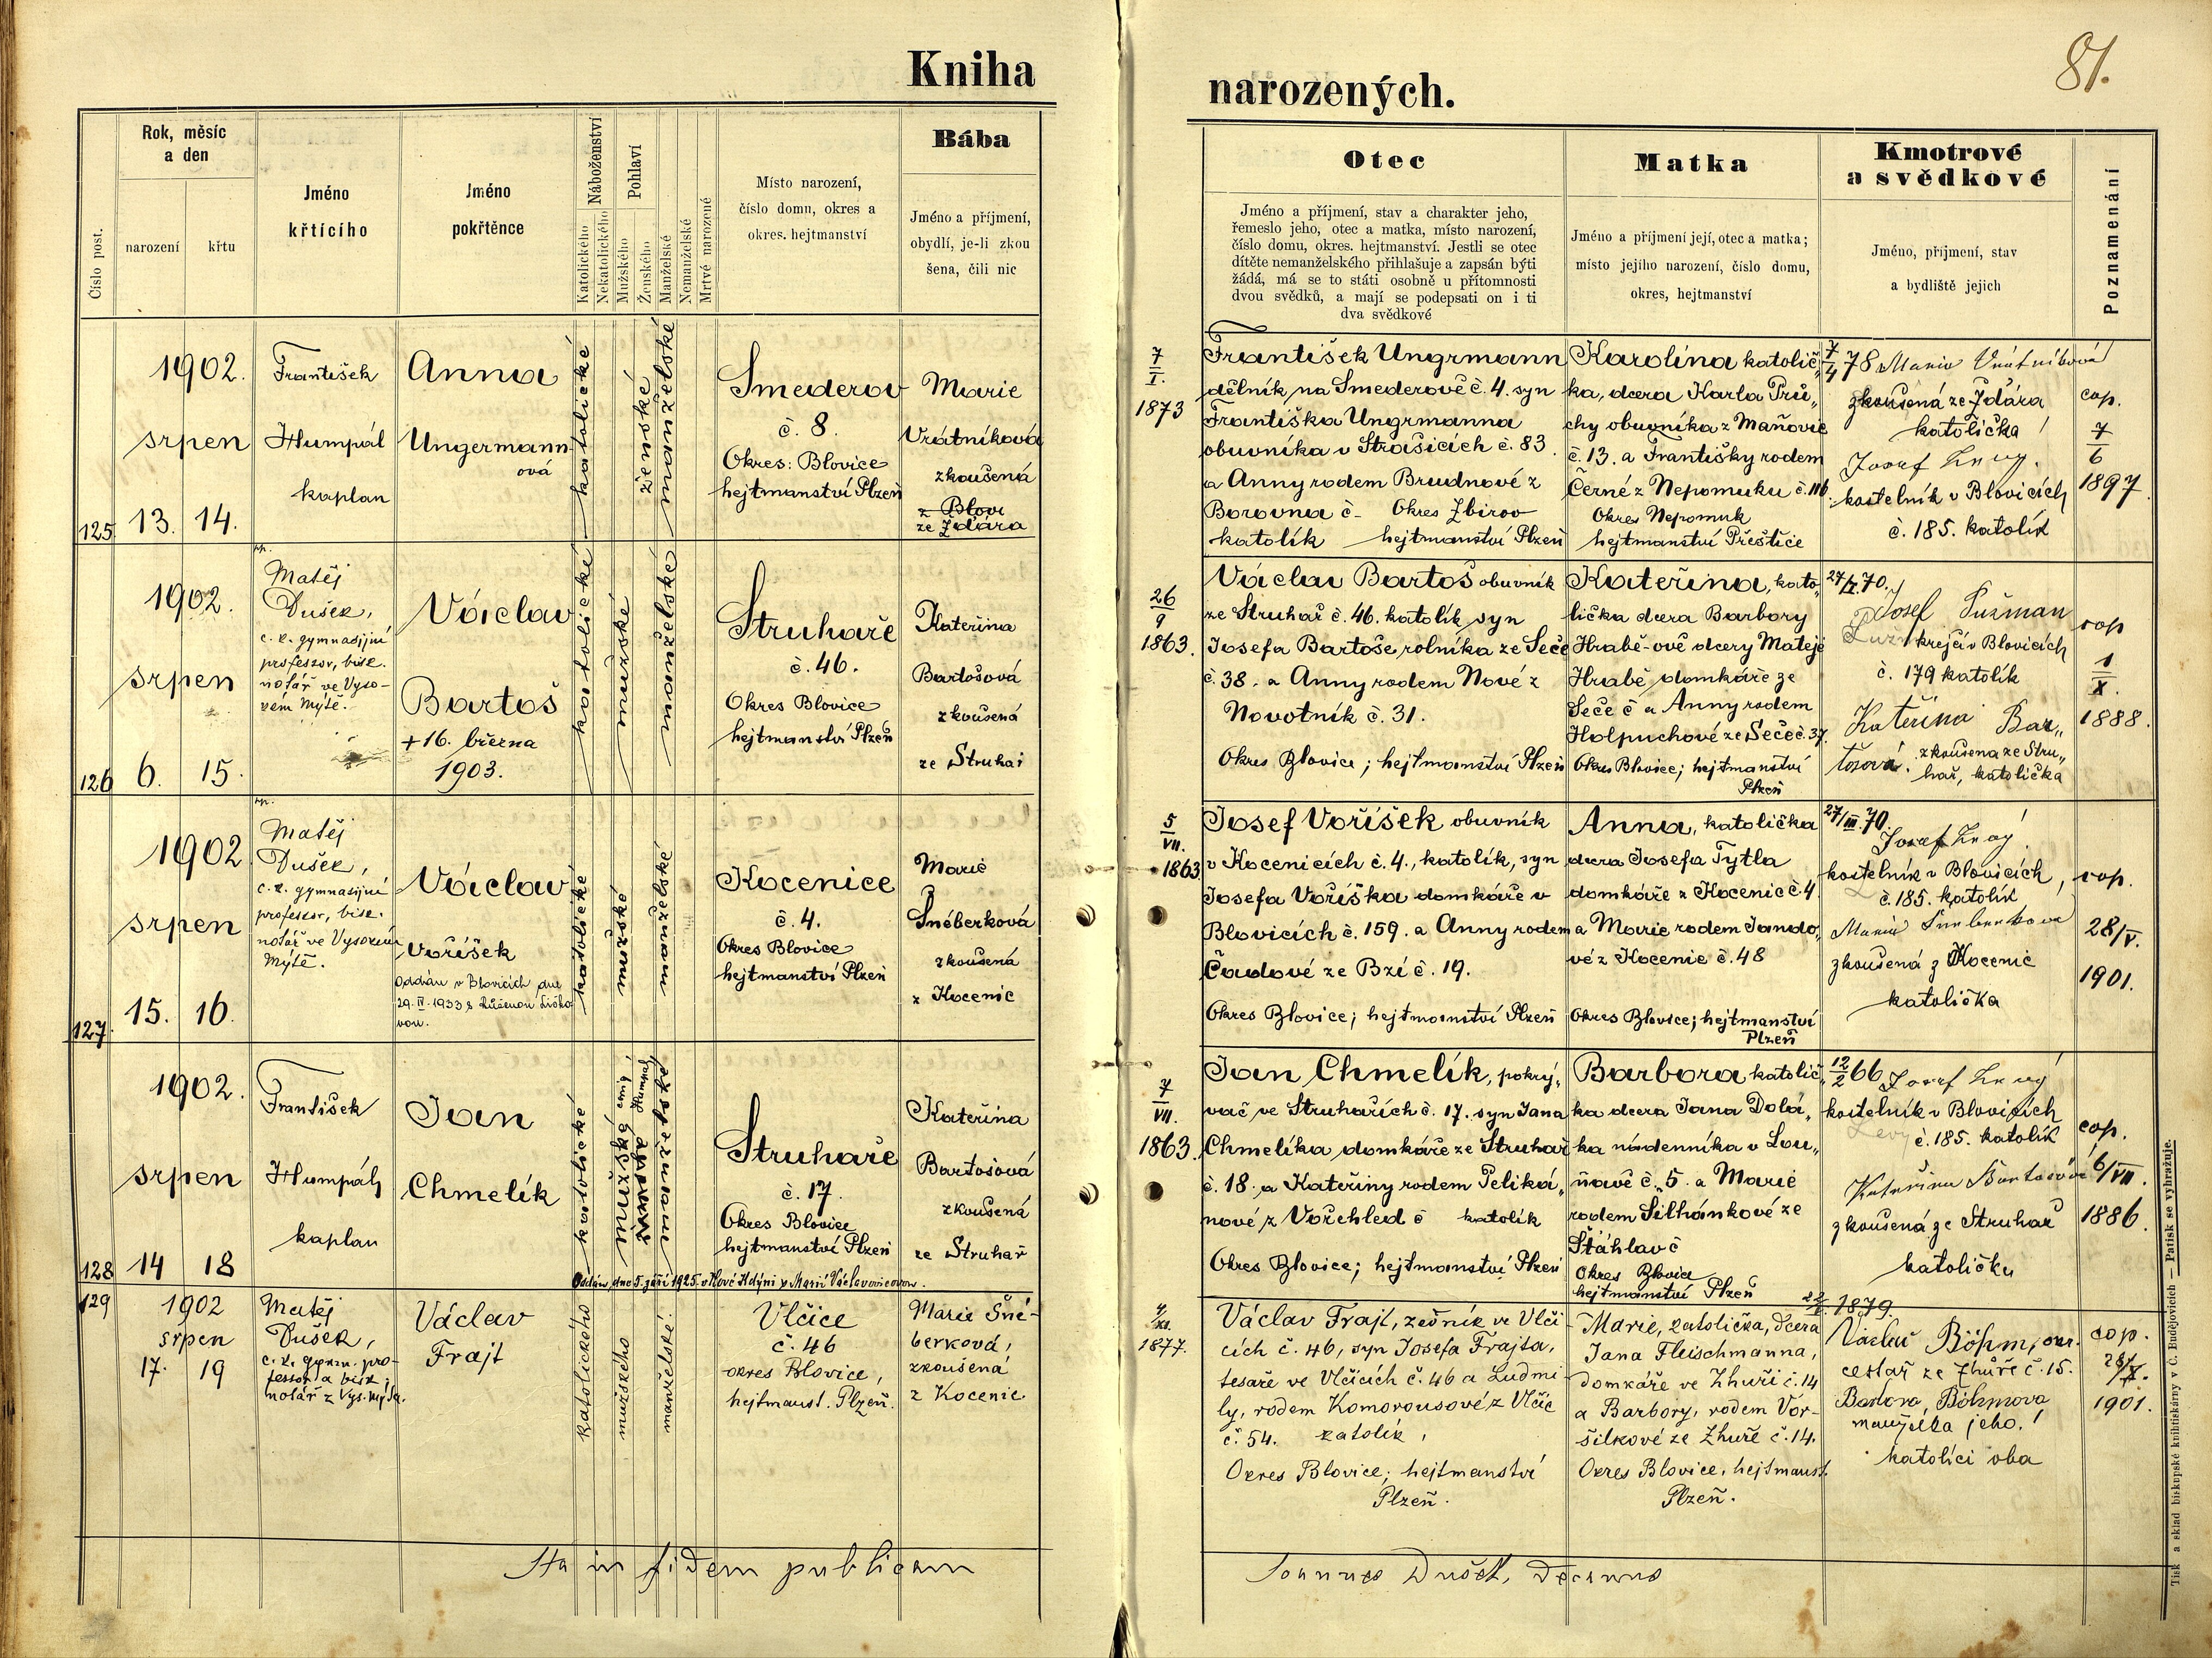 Kniha
narozených.
81.
Číslo post.
Rok, měsíc
a den
narození
křtu
Jméno
křtícího
Jméno
pokřtěnce
Náboženství
Katolického
Nekatolického
Pohlaví
Mužského
Ženského
Manželské
Nemanželské
Mrtvé narozené
Místo narození,
číslo domu, okres a
okres. hejtmanství
Bába
Jméno a příjmení,
obydlí, je-li zkou
šena, čili nic
Otec
Jméno a příjmení, stav a charakter jeho,
řemeslo jeho, otec a matka, místo narození,
číslo domu, okres. hejtmanství. Jestli se otec
dítěte nemanželského přihlašuje a zapsán býti
žádá, má se to státi osobně u přítomnosti
dvou svědků, a mají se podepsati on i ti
dva svědkové
Matka
Jméno a příjmení její, otec a matka;
místo jejího narození, číslo domu,
okres, hejtmanství
Kmotrové
a svědkové
Jméno, příjmení, stav
a bydliště jejich
Poznamenání
125
1902.
srpen
13. 14.
František
Humpál
kaplan
Anna
Ungermann
ová
katolické
ženské
manželské
Smederov
č. 8.
Okres: Blovice
hejtmanství Plzeň
Marie
Vrátníková
zkoušená
z Blovi
ze Ždára
7
I.
1873
František Ungrmann
dělník na Smederově č. 4. syn
Františka Ungrmanna
obuvníka v Strašicích č. 83
a Anny rodem Brudnové z
Borovna č - Okres Zbirov
katolík hejtmanství Plzeň
Karolína katolič„
ka, dcera Karla Prů„
chy obuvníka z Maňovic
č. 13. a Františky rodem
Černé z Nepomuku č. 116.
Okres Nepomuk
hejtmanství Přeštice
7/4 78 Marie Vrátníková
zkoušená ze Ždára
katolička
Josef Levý.
kostelník v Blovicích
č. 185. katolík
cop.
7
6
1897
126
1902.
srpen
6. 15.
Matěj
Dušek,
c. k. gymnasijní
professor, bisk.
notář ve Vyso-
kém Mýtě.
Václav
Bartoš
+16. března
1903.
katolické
mužské
manželské
Struhaře
č. 46.
Okres Blovice
hejtmanství Plzeň
Kateřina
Bartošová
zkoušená
ze Struhař
26
9
1863.
Václav Bartoš obuvník
ze Struhař č. 46. katolík syn
Josefa Bartoše rolníka ze Seče
č. 38. a Anny rodem Nové z
Novotník č. 31.
Okres Blovice; hejtmanství Plzeň
Kateřina, kato-
lička dcera Barbory
Hrabě-ově dcery Matěje
Hrabě domkáře ze
Seče č a Anny rodem
Holpuchové ze Seče č. 37.
Okres Blovice; hejtmanství
Plzeň
Josef
krejčí v Blovicích
č. 179 katolík
Kateřina Bar„
tošová. zkoušena ze Stru„
hař, katolička
cop
1
X.
1888.
127.
1902
srpen
15. 16.
Matěj
Dušek,
c. k. gymnasijní
professor, bisk.
notář ve Vysokém
Mýtě.
Václav
Voříšek
Oddán v Blovicích dne
29. IV. 1933 s Růženou Liško
vou.
katolické
mužské
manželské
Kocenice
č. 4.
Okres Blovice
hejtmanství Plzeň
Marie
Šnéberková
zkoušená
z Kocenic
5
VII.
1863
Josef Voříšek obuvník
v Kocenicích č. 4., katolík, syn
Josefa Voříška domkáře v
Blovicích č. 159. a Anny rodem
Čadové ze Bzí č. 19.
Okres Blovice; hejtmanství Plzeň
Anna, katolička
dcera Josefa Tytla
domkáře z Kocenic č. 4
a Marie rodem Jando„
vé z Kocenic č. 48
Okres Blovice; hejtmanství
Plzeň
27/III. 70.
Josef Levý
kostelník v Blovicích,
č. 185. katolík
Marie Šneberkova
zkoušená z Kocenic
katolička
cop.
28/V.
1901.
128
1902.
srpen
14 18
František
Humpál
kaplan
Jan
Chmelík
katolické
mužské
ženské
manželské
Struhaře
č. 17.
Okres Blovice
hejtmanství Plzeň
Kateřina
Bartošová
zkoušená
ze Struhař
Oddán dne 5. září 1925. v Nové Kdýni s Marií Václavovicovou.
7
VII.
1863.
Jan Chmelík, pokrý„
vač ve Struhařích č. 17. syn Jana
Chmelíka domkáře ze Struhař
č. 18. a Kateřiny rodem Peliká„
nové z Vořehled č katolík
Okres Blovice; hejtmanství Plzeň
Barbora katolič„
ka dcera Jana Dolá„
ka nádenníka v Lou„
ňavě č. 5. a Marie
rodem Silhánkové ze
Štáhlav č
Okres Blovice
hejtmanství Plzeň
12/2 66 Josef Levý
kostelník v Blovicích
č. 185. katolík
Kateřina Bartošová
zkoušená ze Struhař
katolička
cop.
6/VII.
1886.
129
1902
srpen
17. 19
Matěj
Dušek,
c. k. gymn. pro-
fessor a bisk.
notář z Vys. Mýta.
Václav
Frajt
katolického
mužského
manželské.
Vlčice
č. 46
okres Blovice,
hejtmanst. Plzeň.
Marie Šné-
berková,
zkoušená
z Kocenic
1877.
Václav Frajt, zedník ve Vlči-
cích č. 46, syn Josefa Frajta,
tesaře ve Vlčicích č. 46 a Ludmi-
ly, rodem Komorousové z Vlčic
č. 54. katolík,
Okres Blovice; hejtmanství
Plzeň.
Marie, katolička, dcera
Jana Fleischmanna,
domkáře ve Zhuři č. 14
a Barbory, rodem Vor-
šilkové ze Zhuře č. 14.
Okres Blovice, hejtmanst.
Plzeň.
1879.
Václav Böhm, okr.
cestář ze Zhůře č. 15.
Barbora Böhmova
manželka jeho.
katolíci oba
cop.
1901.
Ita in fidem publicam
Joannes Dušek, Decanus
Tisk a sklad biskupské knihtiskárny v Č. Budějovicích — Patisk se vyhražuje.